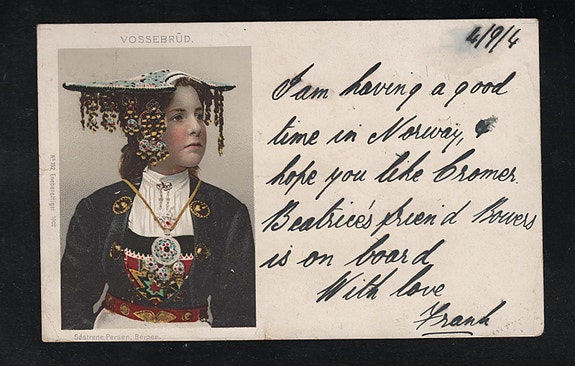 VOSSEBRUD.
4/9/4
I am having a good
time in Norway, &
hope you like Cromer.
Beatrice's friend Bowers
is on board
With love
Frank
Søstrene Persen, Bergen.